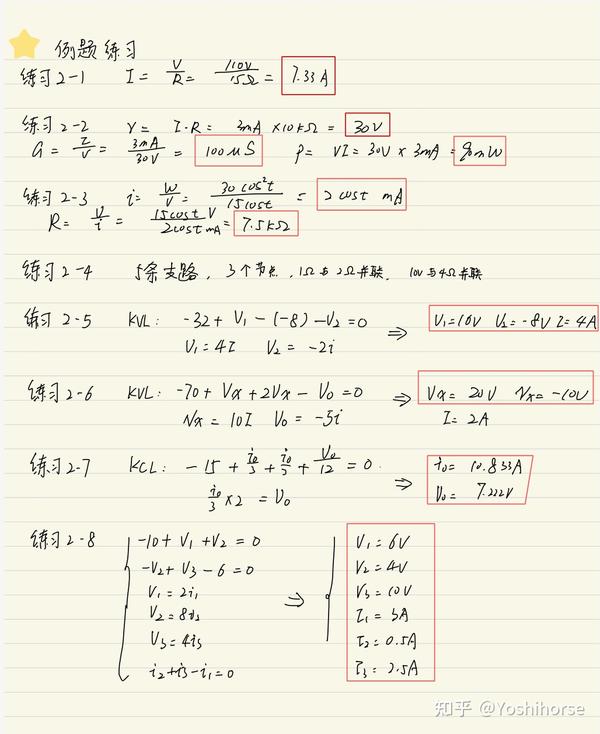 例题练习
练习2-1 I = V/R = 110V/15Ω = 7.33A
练习2-2 V = I·R = 3mA × 10kΩ = 30V
G = I/V = 3mA/30V = 100μS P = VI = 30V × 3mA = 90mW
练习2-3 i = W/V = 30cos²t/15cost = 2cost mA
R = V/i = 15cost V/2cost mA = 7.5kΩ
练习2-4 5条支路, 3个节点, 1Ω与2Ω并联, 10V与4Ω并联
练习2-5 KVL: -32 + V₁ - (-8) - V₂ = 0 ⇒ V₁=16V V₂=-8V I=4A
V₁ = 4I V₂ = -2i
练习2-6 KVL: -70 + Vx + 2Vx - V₀ = 0 ⇒ Vx = 20V Vx = -10V
Vx = 10I V₀ = -5i I = 2A
练习2-7 KCL: -15 + i₀/3 + i₀ + V₀/12 = 0 ⇒ i₀ = 10.833A
i₀/3 × 2 = V₀ V₀ = 7.222V
练习2-8 -10 + V₁ + V₂ = 0 V₁ = 6V
-V₂ + V₃ - 6 = 0 V₂ = 4V
V₁ = 2i₁ ⇒ V₃ = 10V
V₂ = 8i₂ I₁ = 3A
V₃ = 4i₃ I₂ = 0.5A
i₂ + i₃ - i₁ = 0 I₃ = 2.5A
知乎 @Yoshihorse